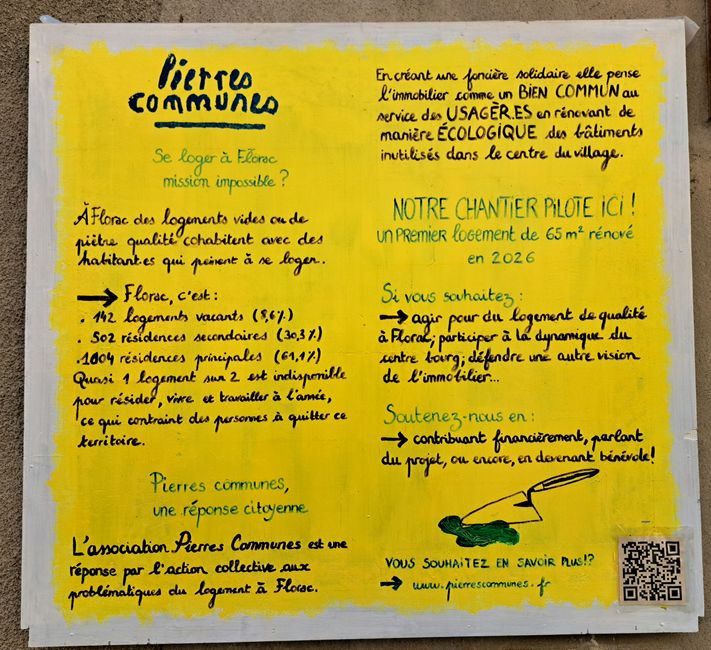 Pierres
communes
Se loger à Florac
mission impossible ?
À Florac des logements vides ou de
piètre qualité cohabitent avec des
habitant.es qui peinent à se loger.
→ Florac, c'est :
. 142 logements vacants (8,6%)
. 502 résidences secondaires (30,3%)
. 1004 résidences principales (61,1%)
Quasi 1 logement sur 2 est indisponible
pour résider, vivre et travailler à l'année,
ce qui contraint des personnes à quitter ce
territoire.
Pierres communes,
une réponse citoyenne
L'association Pierres Communes est une
réponse par l'action collective aux
problématiques du logement à Florac.
En créant une foncière solidaire elle pense
l'immobilier comme un BIEN COMMUN au
service des USAGÈR.ES en rénovant de
manière ÉCOLOGIQUE des bâtiments
inutilisés dans le centre du village.
NOTRE CHANTIER PILOTE ICI !
UN PREMIER logement de 65 m² rénové
en 2026
Si vous souhaitez :
→ agir pour du logement de qualité
à Florac; participer à la dynamique du
centre bourg; défendre une autre vision
de l'immobilier...
Soutenez-nous en :
→ contribuant financièrement, parlant
du projet, ou encore, en devenant bénévole !
VOUS SOUHAITEZ EN SAVOIR PLUS!?
→ www.pierrescommunes.fr